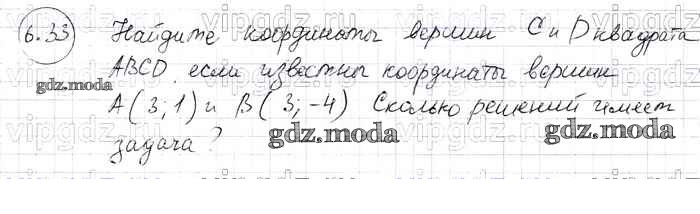 6.33 Найдите координаты вершин C и D квадрата
ABCD, если известны координаты вершин
gdz.moda
A(3; 1) и B(3; -4) Сколько решений имеет
gdz.moda gdz.moda
задача?